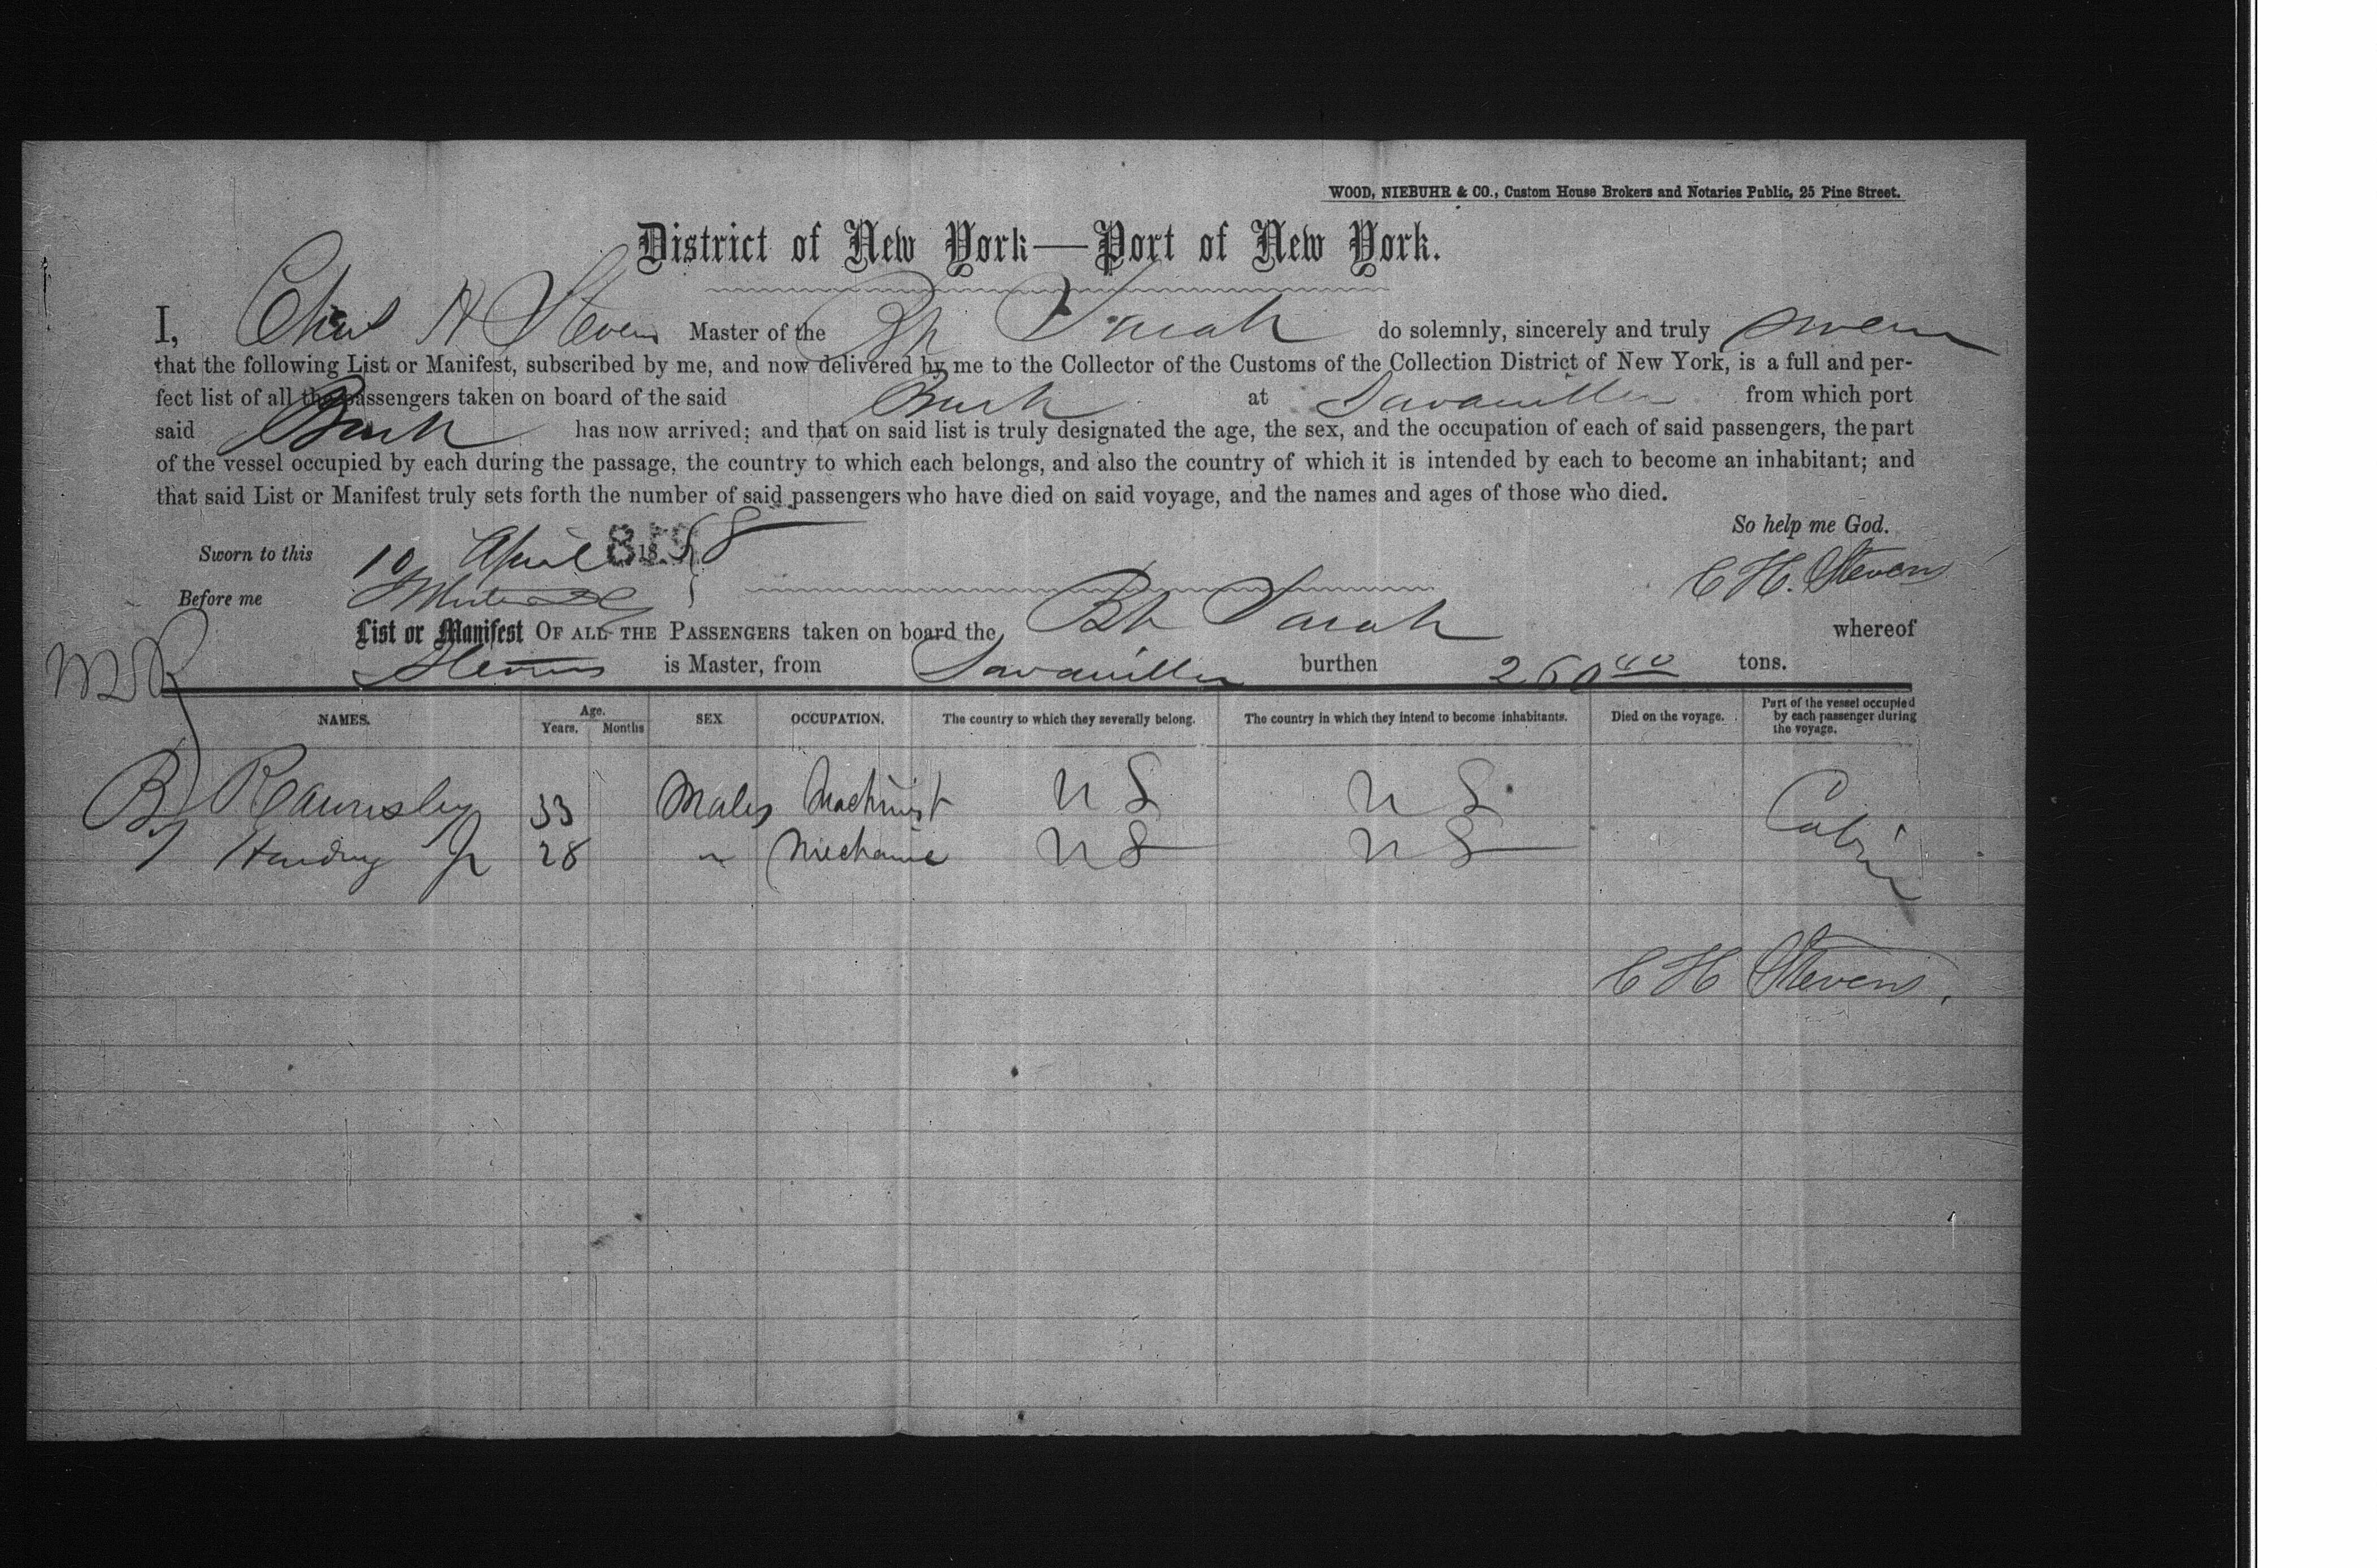 WOOD, NIEBUHR & CO., Custom House Brokers and Notaries Public, 25 Pine Street.
District of New York—Port of New York.
I, Chas H Stevens Master of the Bk Sarah do solemnly, sincerely and truly swear
that the following List or Manifest, subscribed by me, and now delivered by me to the Collector of the Customs of the Collection District of New York, is a full and per-
fect list of all the passengers taken on board of the said Bark at Savanilla from which port
said Bark has now arrived; and that on said list is truly designated the age, the sex, and the occupation of each of said passengers, the part
of the vessel occupied by each during the passage, the country to which each belongs, and also the country of which it is intended by each to become an inhabitant; and
that said List or Manifest truly sets forth the number of said passengers who have died on said voyage, and the names and ages of those who died.
So help me God.
Sworn to this 10 April 18 8
C H. Stevens
Before me
List or Manifest OF ALL THE PASSENGERS taken on board the Bk Sarah whereof
Stevens is Master, from Savanilla burthen 260 40 tons.
NAMES. Age. Years. Months SEX OCCUPATION. The country to which they severally belong. The country in which they intend to become inhabitants. Died on the voyage. Part of the vessel occupied by each passenger during the voyage.
B Rawnsley 33 Males Machinist U S U S Cabin
Harding Jr 28 " Mechanic U S U S
C H Stevens.